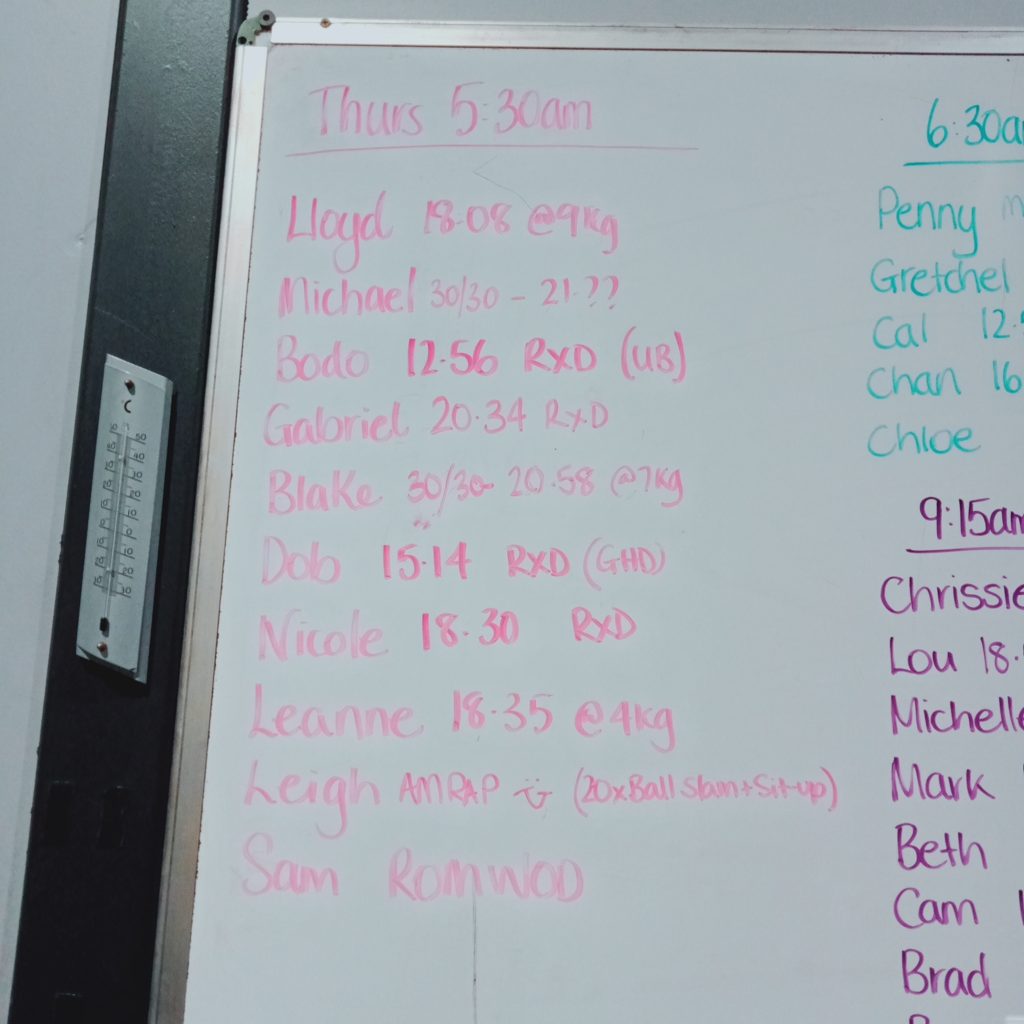 Thurs 5:30am
Lloyd 18.08 @9kg
Michael 30/30 - 21.??
Bodo 12.56 RXD (UB)
Gabriel 20.34 RXD
Blake 30/30- 20.58 @7kg
Dob 15.14 RXD (GHD)
Nicole 18.30 RXD
Leanne 18.35 @4kg
Leigh AMRAP (20xBall Slam+Sit-up)
Sam ROMWOD
6:30a
Penny
Gretchel
Cal 12.
Chan 16
Chloe
9:15am
Chrissie
Lou 18.
Michelle
Mark
Beth
Cam
Brad
C